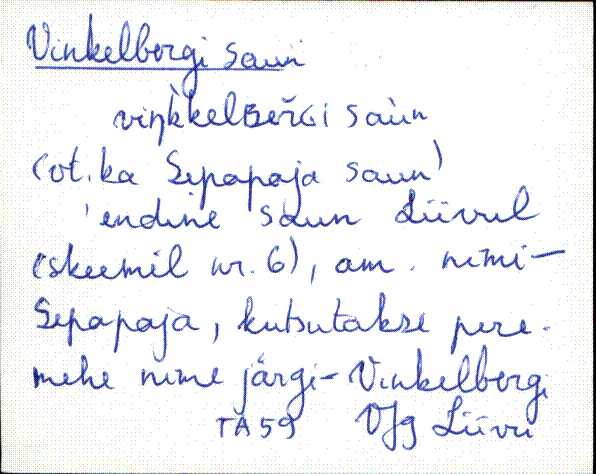 Vinkelbergi saun
viŋ̀kkelʙeřɢi saùn
(vt. ka Sepapaja saun)
'endine saun Liivul
(skeemil nr. 6), am. nimi—
Sepapaja, kutsutakse pere-
mehe nime järgi - Vinkelbergi
TA 59 VJg Liivu